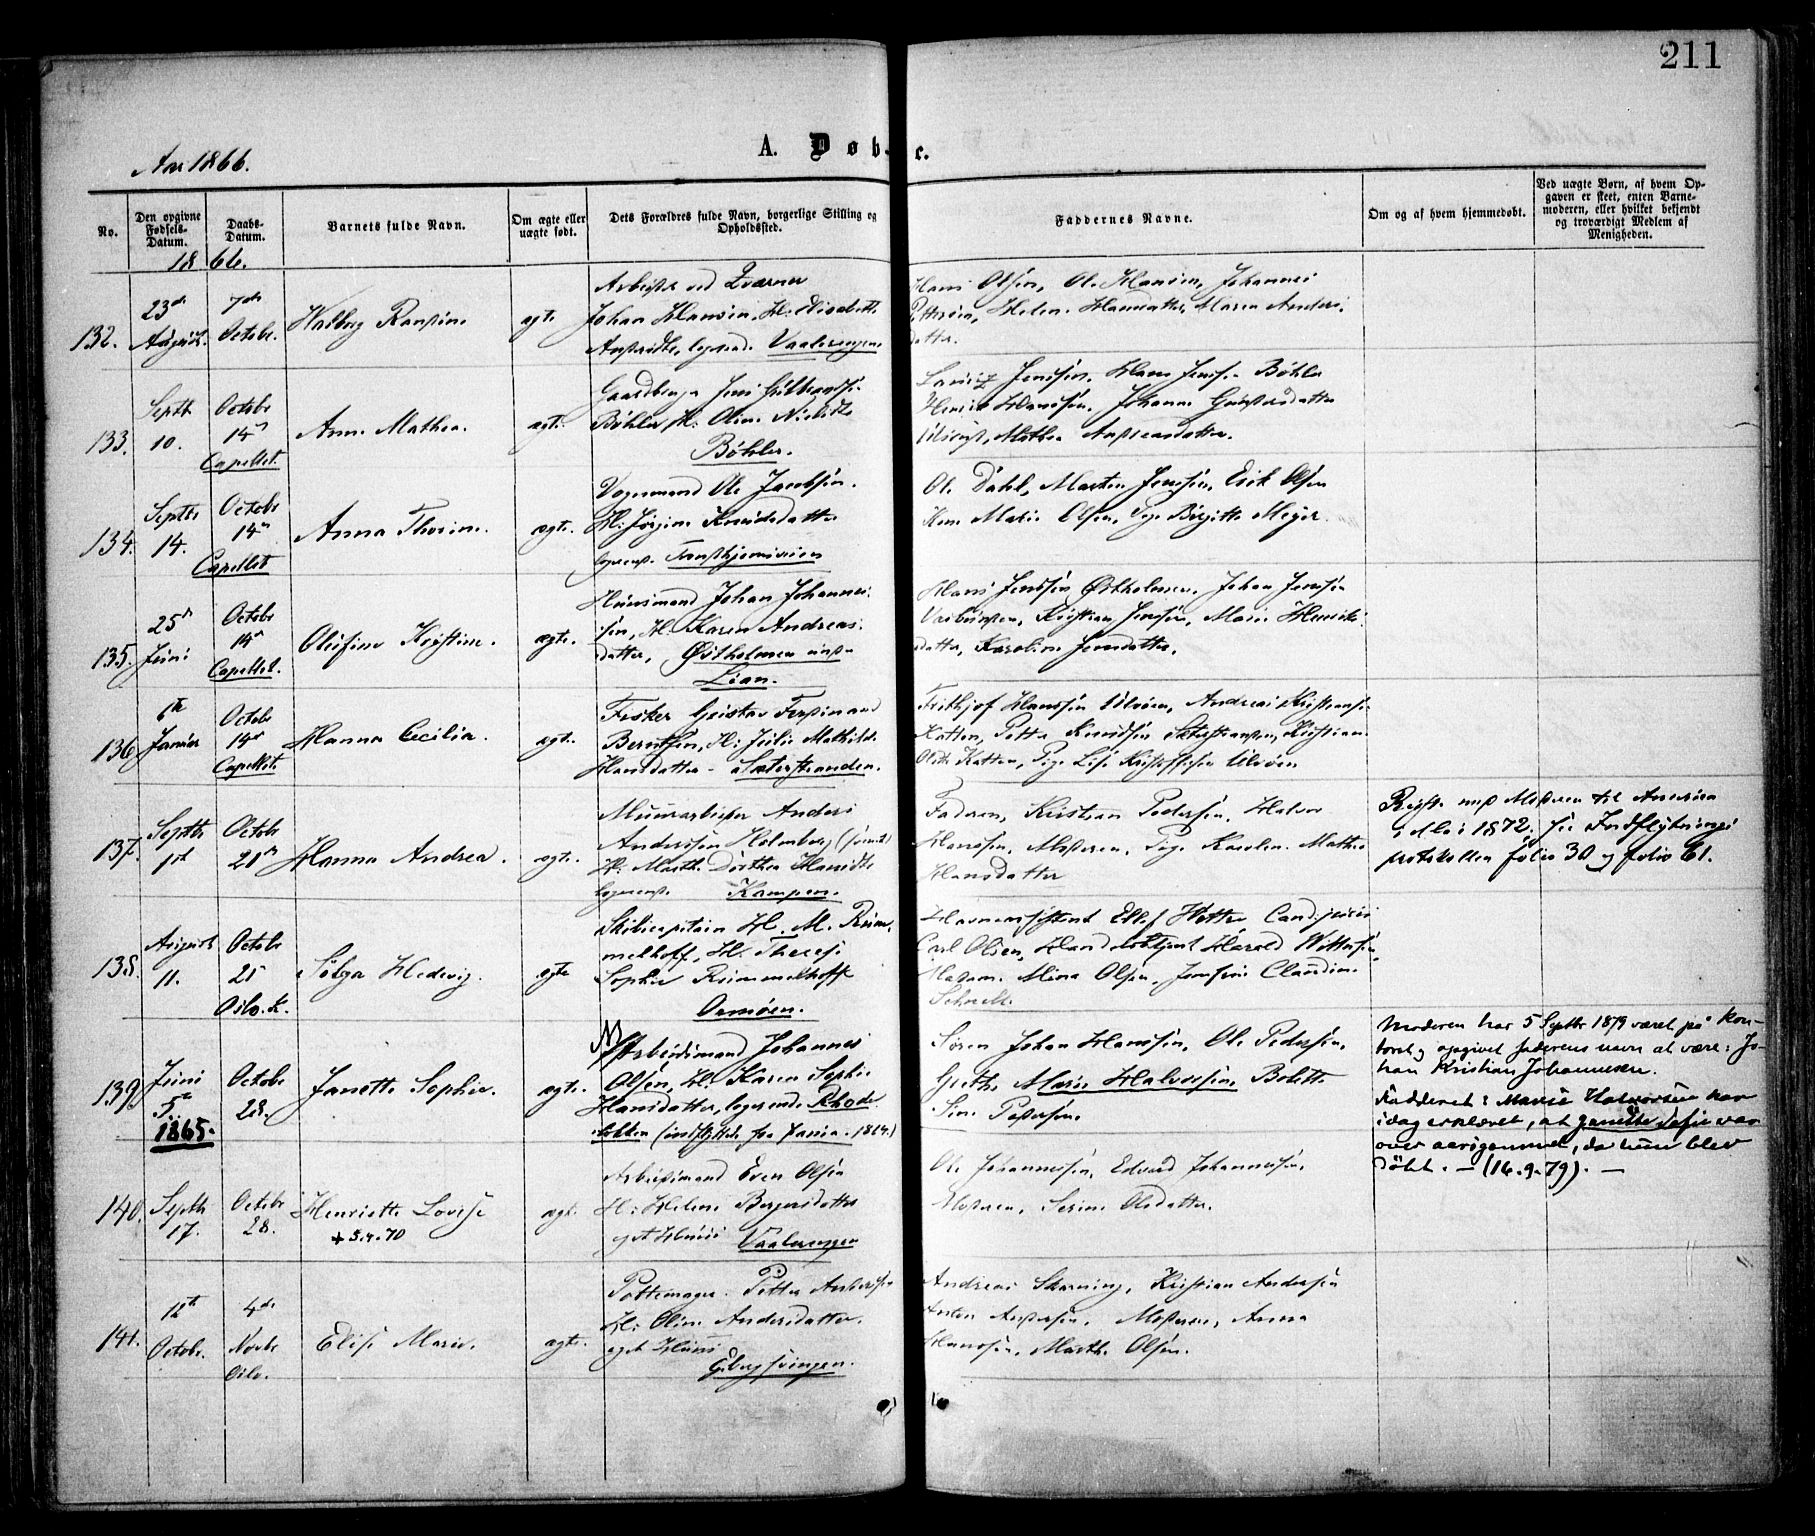 211
Aar 1866.
A. Døbte.
No.
Den opgivne Fødsels-Datum.
Daabs-Datum.
Barnets fulde Navn.
Om ægte eller uægte født.
Dets Forældres fulde Navn, borgerlige Stilling og Opholdssted.
Faddernes Navne.
Om og af hvem hjemmedøbt.
Ved uægte Børn, af hvem Opgaven er skeet, enten Barnemoderen, eller hvilket bekjendt og troværdigt Medlem af Menigheden.
1866.
132.
23de August.
7de Octobr.
Valborg
ægte
Arbeider ved Qværner
Johan Hansen, H. Elisabeth
logerende Vaalerengen
Hans Olsen, Ole Hansen, Johannes
Pettersen, Helene Maren Anders
datter.
133.
Septbr 10.
Octobr 14de Capellet.
Anne Mathea.
ægte.
Jens
Bøhler, H. Oline
Bøhler.
Jenssen, Hans Jenssen Bøhler
Hansen, Johanne
Mathea
134.
Septbr 14.
Octobr 14de Capellet
Anna Thorine.
ægte.
Vognmand Ole Jacobsen.
H: Jørgine Knudsdatter
Ole Dahl, Morten Jenssen, Erik Olsen
Kone Marie Olsen, Pige Birgitte Meyer.
135.
25de Juni
Octobr 14de Capellet.
Olufine Kristine.
ægte.
Huusmand Johan Johannes-
sen, H. Karen Andreas-
datter, Østholmen under
Lian.
Hans Jenssen Østholmen, Johan Jenssen
Kristian Jenssen, Marie Henriks
datter, Karoline Jensdatter.
136.
6te Januar
Octobr 14de Capellet
Hanna Cecilia.
ægte.
Fisker Gustav Ferdinand
Berntsen, H: Julie Mathilde
Hansdatter - Sæterstranden.
Frithjof Hanssen Ulvøen, Andreas Kristensen
Katten, Petter Knudsen Kristian
Olsen Katten, Pige Lise Kristoffersen Ulvøen
137.
Septbr 1ste
Octobr 21de
Hanna Andrea.
ægte.
Muurarbeider Anders
Anderssen Holmberg
H: Marthe Dorthea Hansdtr
logerende Kampen.
Faderen, Kristian Pedersen, Halvor
Hanssen, Moderen, Pige Karoline Mathea
Hansdatter
Reiste med Moderen til Amerika
i Mai 1872, se Indflytnings
protokollen folio 30 og folio 61.
138.
August 11.
Octobr 21 Oslo K.
Solga Hedevig.
ægte
Skibscapitain H. M. Rüm-
melhoff, H. Therese
Sophie Rümmelhoff
Ormøen.
Ellef Holter Cand.juris
Carl Olsen, Harald
Madam Mina Olsen, Jomfru Claudine
139.
Juni 5te 1865.
Octobr 28.
Janette Sophie.
ægte.
Arbeidsmand Johannes
Olsen, H. Karen Sophie
Hansdatter, logerende Rhode-
løkken (indflyttede fra Januar 1864.)
Søren Johan Hanssen, Ole Pedersen,
Marie Halvorsen, Bolette
Sine Pedersen.
Moderen har 5 Septbr 1879 været på kon-
toret og opgivet faderens navn at være: Jo-
han Kristian Johannesen.
Fadderet: Marie Halvorsen har
idag erklæret, at Janette Sofie var
over aarsgammel, da hun blev
døbt. - (16.9.79). -
140.
Septbr 17.
Octobr 28.
Henriette Lovise
+ 5.4.70
ægte.
Arbeidsmand Even Olsen
H: Helene Bergersdatter
eget Huus Vaalerengen
Ole Johannessen, Edvard Johannessen,
Moderen, Serine Olsdatter.
141.
12te Octobr.
4de Novbr Oslo.
Elise Marie.
ægte.
Pottemager Petter Anderssen
H: Oline Andersdatter.
eget Huus
Geberg svingen.
Andreas Skarning, Kristian Andersen
Anton Anderssen, Moderen, Anna
Hanssen, Marthe Olsen.